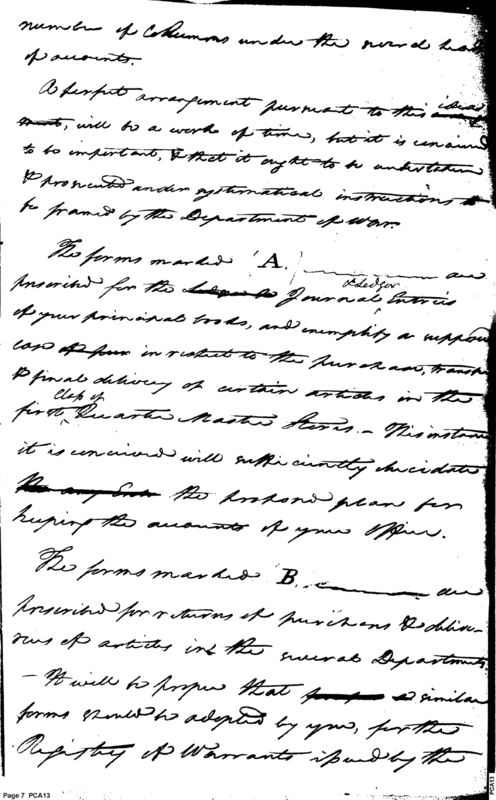 number of Columns under the several heads
of accounts.
A perfect arrangement pursuant to this idea
will be a work of time, but it is conceived
to be important, & that it ought to be undertaken
& prosecuted under systematical instructions to
be framed by the Department of War.
The forms marked A. are
prescribed for the Journal & Ledger Entries
of your principal books, and exemplify a supposed
case in respect to the purchase, transfer
& final delivery of certain articles in the
first Class of Quarter Master Stores. – This instance
it is conceived will sufficiently elucidate
the proposed plan for
keeping the accounts of your Office.
The forms marked B. are
prescribed for returns of purchases & delive-
ries of articles in the several Departments
– It will be proper that similar
forms should be adopted by you, for the
Registry of Warrants issued by the
Page 7 PCA13
PCA13